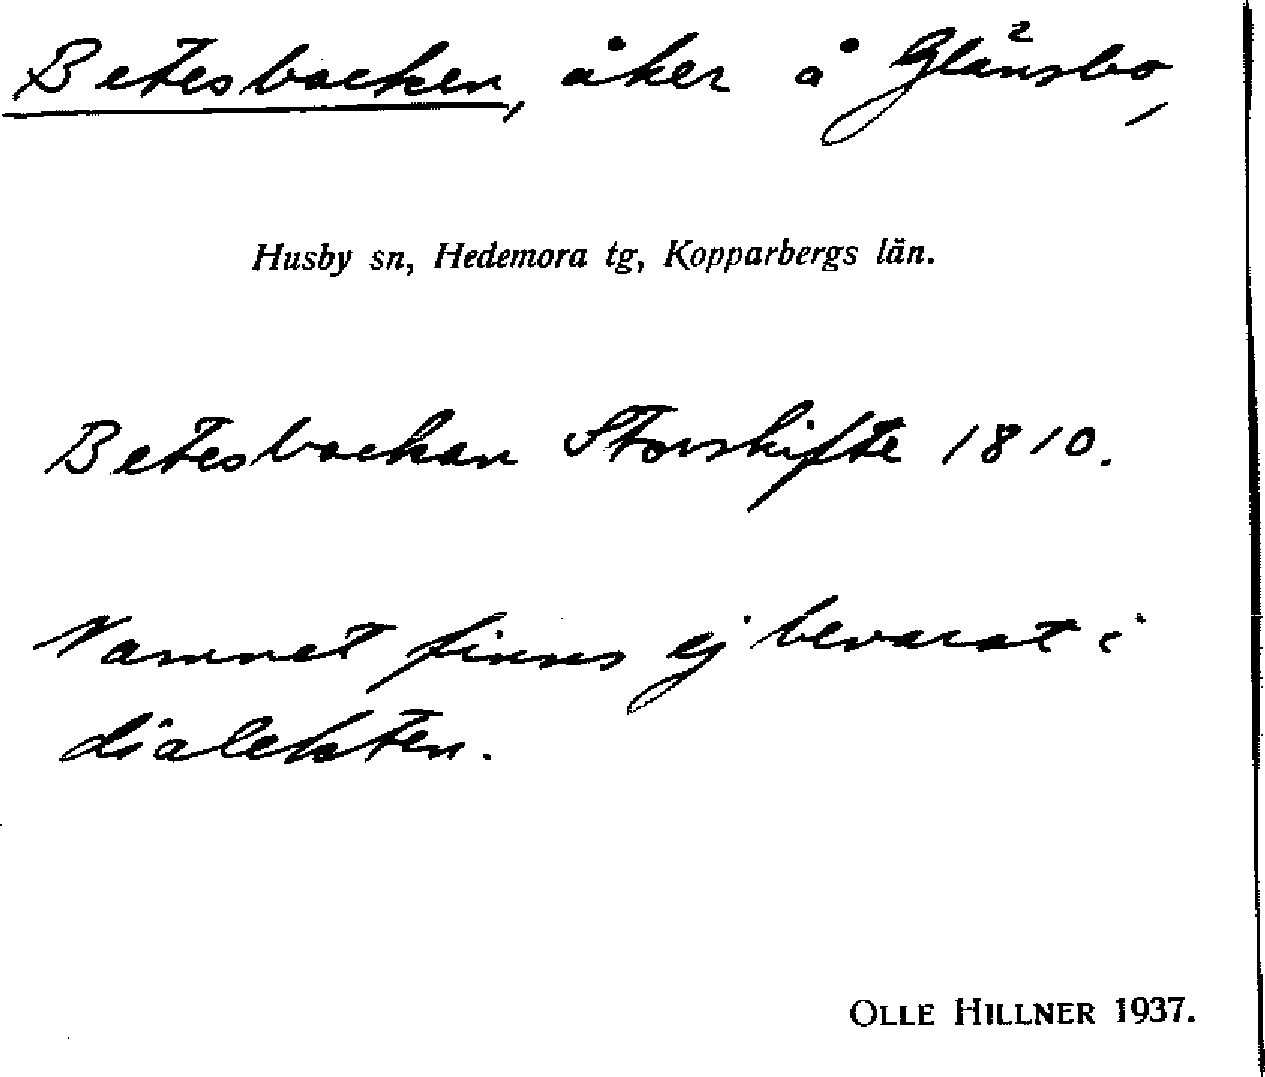 Betesbacken, åker å Glänsbo,
Husby sn, Hedemora tg, Kopparbergs län.
Betesbackan Storskifte 1810.
Namnet finns ej bevarat i
dialekten.
OLLE HILLNER 1937.